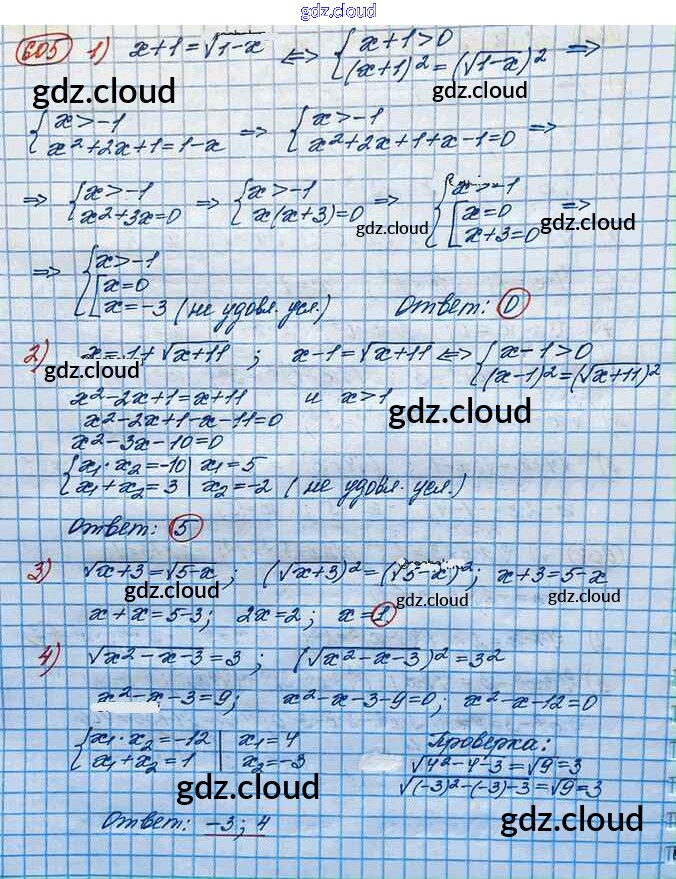 gdz.cloud
605 1) x+1=√1-x ⇔ { x+1>0
(x+1)²=(√1-x)² ⇒
gdz.cloud gdz.cloud
{ x>-1
x²+2x+1=1-x ⇒ { x>-1
x²+2x+1+x-1=0 ⇒
⇒ { x>-1
x²+3x=0 ⇒ { x>-1
x(x+3)=0 ⇒ { x>-1
[ x=0
x+3=0 ⇒
gdz.cloud gdz.cloud
⇒ { x>-1
[ x=0
x=-3 (не удовл. усл.) Ответ: 0
2) x=1+√x+11 ; x-1=√x+11 ⇔ { x-1>0
(x-1)²=(√x+11)²
gdz.cloud
x²-2x+1=x+11 и x>1
gdz.cloud
x²-2x+1-x-11=0
x²-3x-10=0
{ x₁·x₂=-10 | x₁=5
x₁+x₂=3 | x₂=-2 (не удовл. усл.)
Ответ: 5
3) √x+3=√5-x ; (√x+3)²=(√5-x)²; x+3=5-x
gdz.cloud gdz.cloud gdz.cloud
x+x=5-3; 2x=2; x=1
4) √x²-x-3=3 ; (√x²-x-3)²=3²
x²-x-3=9; x²-x-3-9=0; x²-x-12=0
{ x₁·x₂=-12 | x₁=4
x₁+x₂=1 | x₂=-3
Проверка:
√4²-4-3=√9=3
√(-3)²-(-3)-3=√9=3
gdz.cloud
Ответ: -3; 4
gdz.cloud